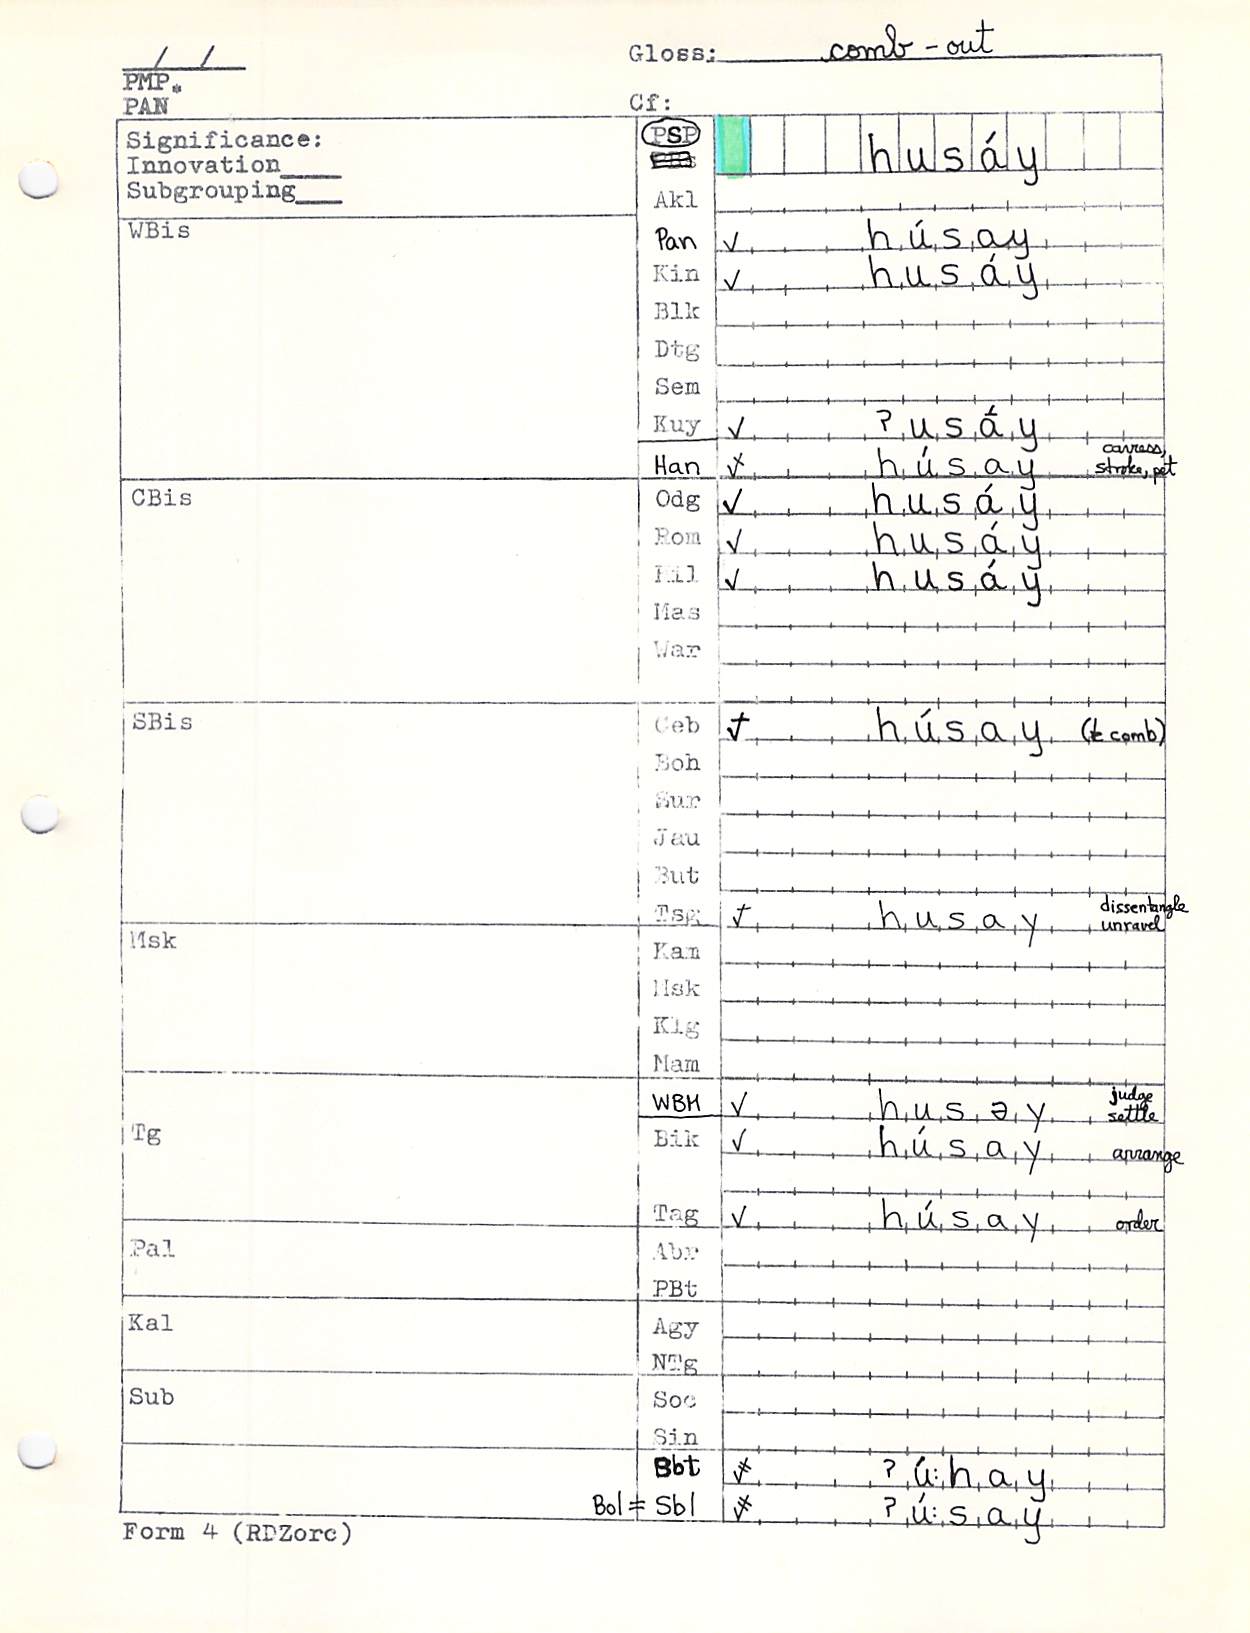 Gloss: comb-out
PMP*
PAN
Cf:
Significance:
Innovation
Subgrouping
PSP husáy
Akl
WBis
Pan ✓ húsay
Kin ✓ husáy
Blk
Dtg
Sem
Kuy ✓ ʔusáy
Han húsay carress, stroke, pet
CBis
Odg ✓ husáy
Rom ✓ husáy
Hil ✓ husáy
Mas
War
SBis
Ceb húsay (& comb)
Boh
Sur
Jau
But
Tsg husay dissentangle unravel
Msk
Kam
Msk
Klg
Mam
WBM ✓ husəy judge settle
Tg
Bik ✓ húsay arrange
Tag ✓ húsay order
Pal
Abr
PBt
Kal
Agy
NTg
Sub
Soc
Sin
Bbt ʔú:hay
Bol = Sbl ʔú:say
Form 4 (RDZorc)